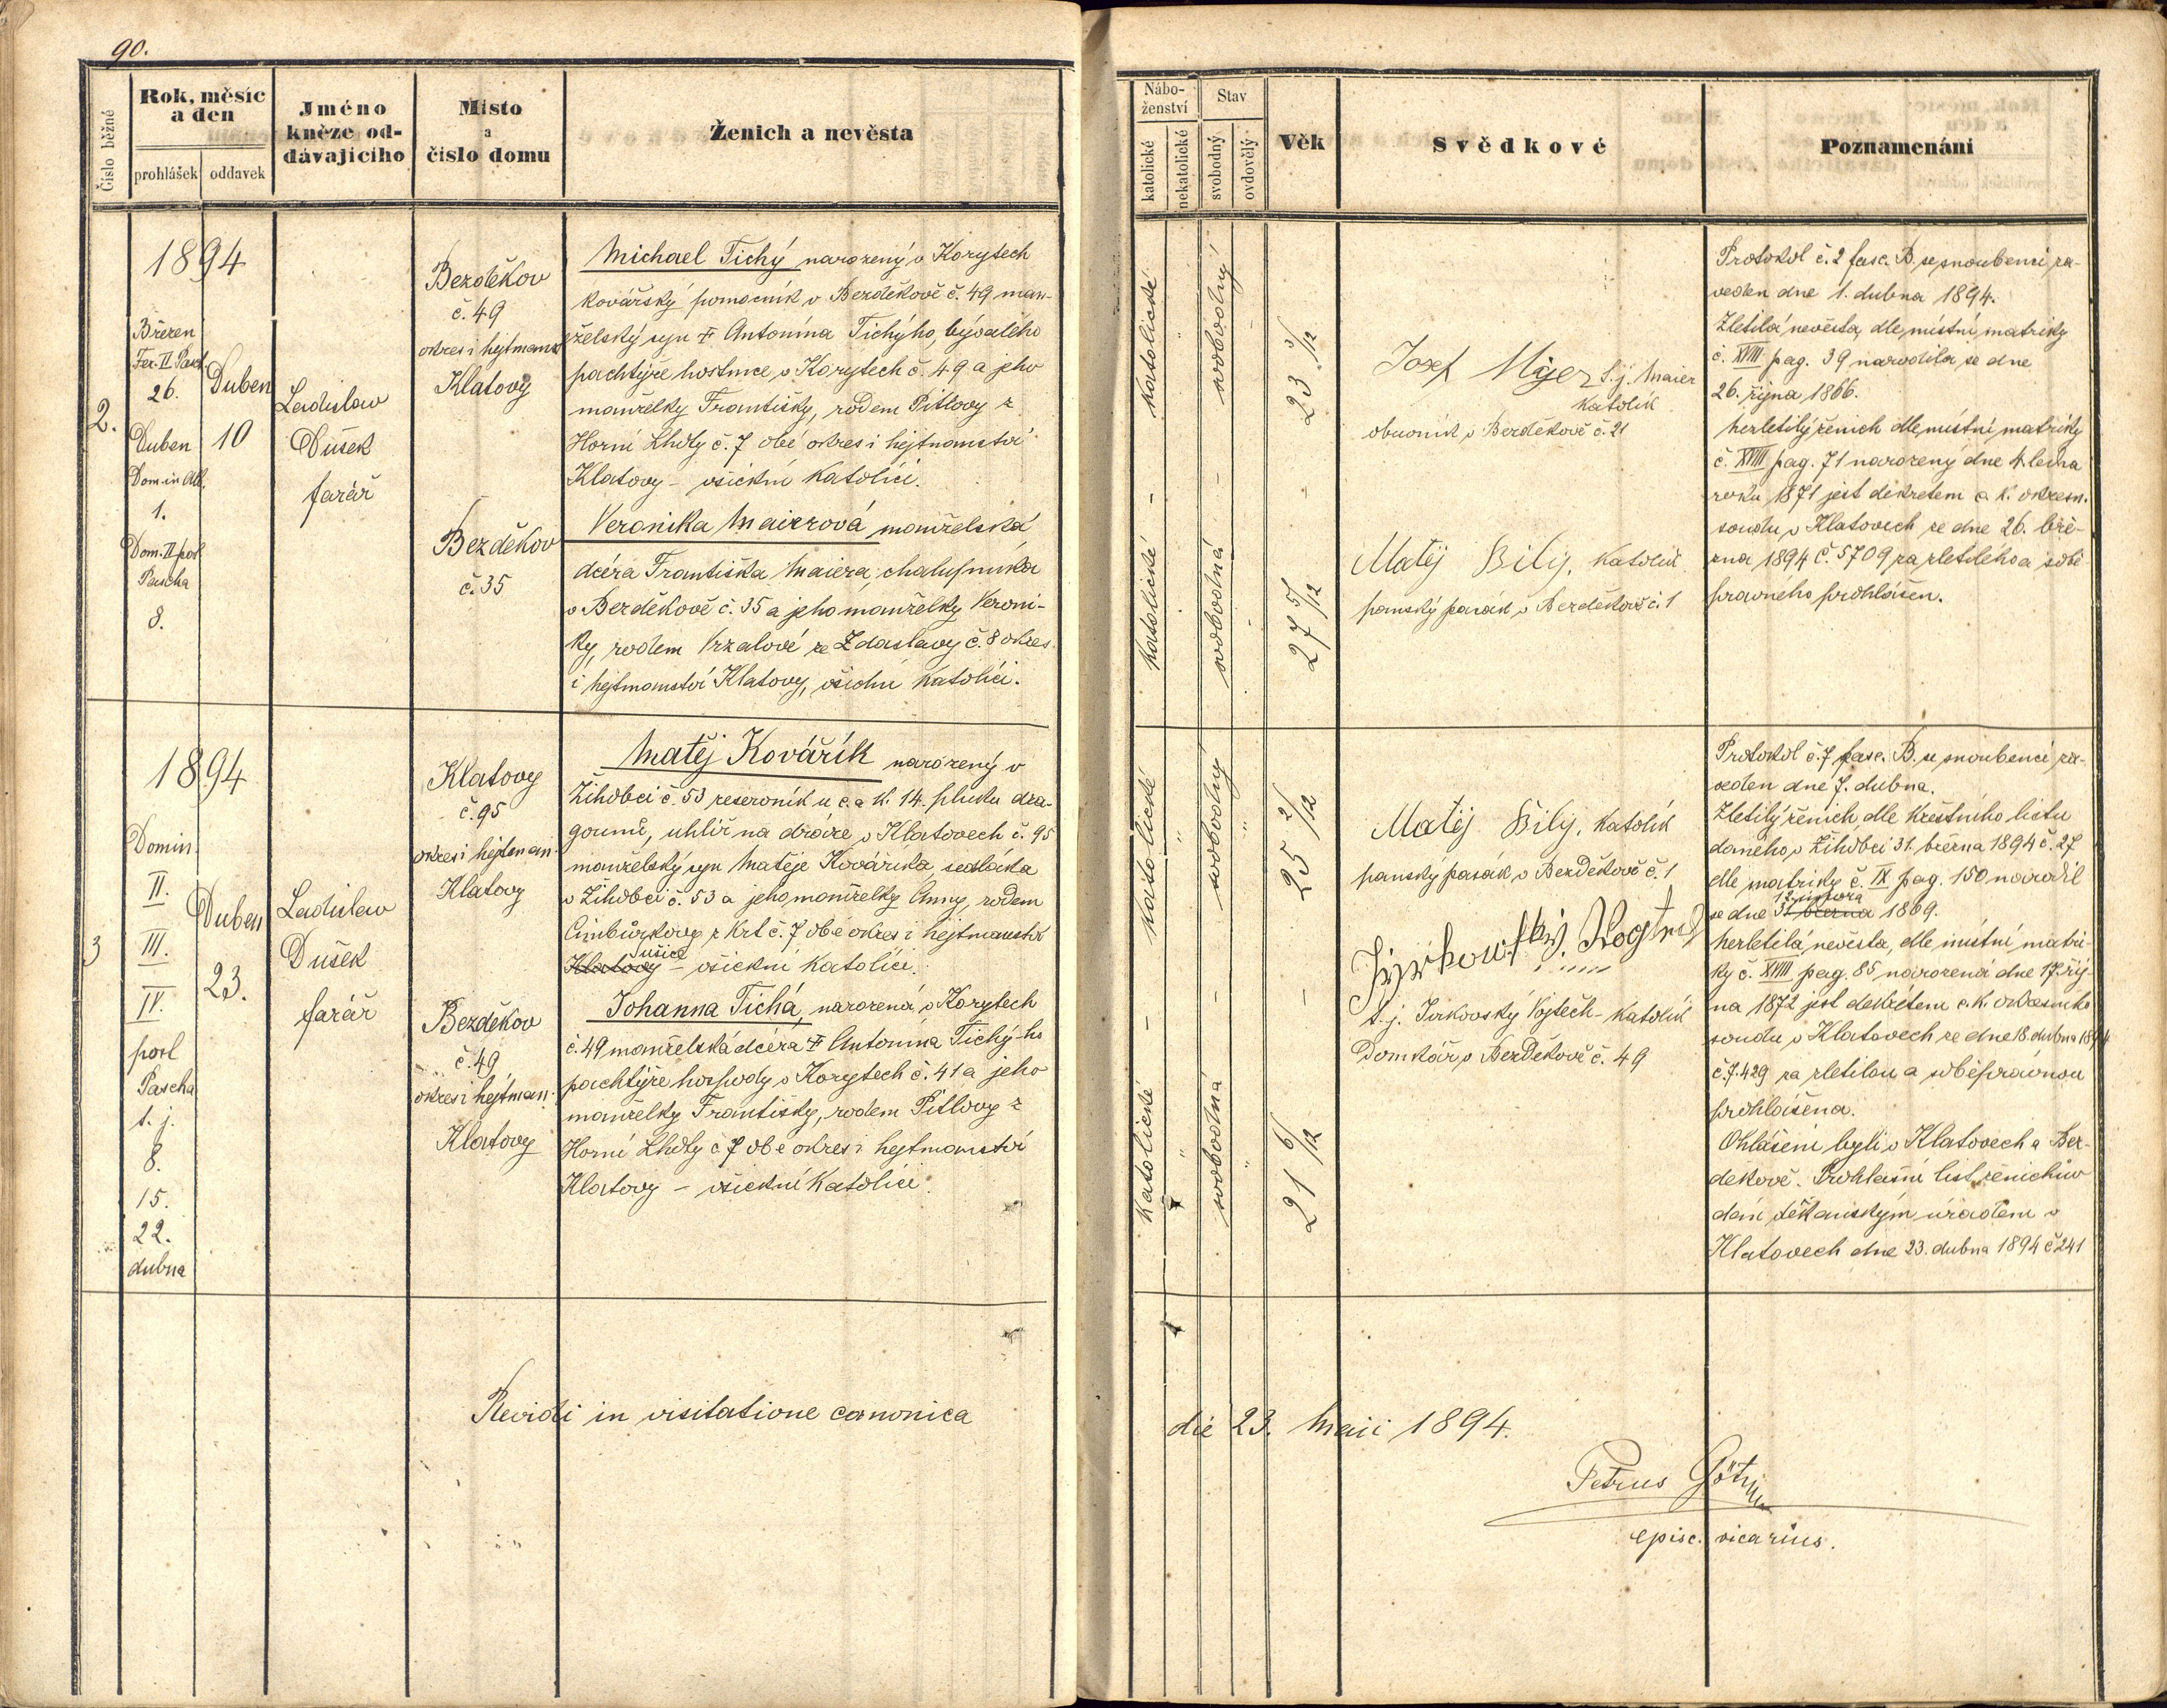 90.
Číslo běžné
Rok, měsíc
a den
prohlášek
oddavek
Jméno
kněze od-
dávajícího
Místo
a
číslo domu
Ženich a nevěsta
Nábo-
ženství
katolické
nekatolické
Stav
svobodný
ovdovělý
Věk
Svědkové
Poznamenání
2.
1894
Březen
Fer. II Pasch.
26.
Duben
Dom. in Alb.
1.
Dom. II post
Pascha
8.
Duben
10
Ladislav
Dušek
farář
Bezděkov
č. 49
okres i hejtmanst
Klatovy
Bezděkov
č. 35
Michael Tichý narozený v Korytech
kovářský pomocník v Bezděkově č. 49 man-
želský syn † Antonína Tichýho, bývalého
pachtýře hostince v Korytech č. 49 a jeho
manželky Františky, rodem Pitlovy z
Horní Lhoty č. 7 obé okres i hejtmanství
Klatovy – všickni katolíci.
Veronika Maierová manželská
dcéra Františka Maiera, chalupníka
v Bezděkově č. 35 a jeho manželky Veroni-
ky, rodem Vrzalové ze Zdaslavy č. 8 okres
i hejtmanství Klatovy, všichni katolíci.
katolické
svobodný
23 3/12
katolické
svobodná
27 5/12
Josef Mýer t. j. Maier
katolík
obuvník v Bezděkově č. 21
Matěj Bílý, katolík
panský pasák v Bezděkově č. 1
Protokol č. 2 fasc. B. se snoubenci za-
veden dne 1. dubna 1894.
Zletilá nevěsta, dle místní matriky
č. XVIII pag. 39 narodila se dne
26. října 1866.
Nezletilý ženich dle místní matriky
č. XVIII pag. 71 narozený dne 4. ledna
roku 1871 jest dekretem c. k. okresn.
soudu v Klatovech ze dne 26. bře-
zna 1894 č. 5709 za zletilého a sobě-
pravného prohlášen.
3
1894
Domin.
II.
III.
IV.
post
Pascha
t. j.
8.
15.
22.
dubna
Duben
23.
Ladislav
Dušek
farář
Klatovy
č. 95
okres i hejtman-
Klatovy
Bezděkov
č. 49
okres i hejtman-
Klatovy
Matěj Kovářík narozený v
Žihobci č. 53 reservník u c. a k. 14. pluku dra-
gounů, uhlíř na dráze v Klatovech č. 95
manželský syn Matěje Kováříka, sedláka
v Žihobci č. 53 a jeho manželky Anny, rodem
Cimbůrkovy z Krt č. 7 obé okres i hejtmanství
Klatovy ušice – všickni katolíci.
Johanna Tichá, narozená v Korytech
č. 49 manželská dcéra † Antonína Tichý-ho
pachtýře hospody v Korytech č. 41 a jeho
manželky Františky, rodem Pitlovy z
Horní Lhoty č 7 obé okres i hejtmanství
Klatovy – všickni katolíci.
katolické
svobodný
25 2/12
katolické
svobodná
21 6/12
Matěj Bílý, katolík
panský pasák v Bezděkově č. 1
t. j. Jirkovský Vojtěch – katolík
Domkář v Bezděkově č. 49
Protokol č. 7 fasc. B. se snoubenci za-
veden dne 7. dubna.
Zletilý ženich dle křestního listu
daného v Žihobci 31. března 1894 č. 27
dle matriky č. IX pag. 150 narodil
se dne 31. března 12. února 1869.
Nezletilá nevěsta, dle místní matri-
ky č. XVIII pag. 85 narozená dne 17. říj-
na 1872 jest dekretem c. k. okresního
soudu v Klatovech ze dne 18. dubna 1894
č. 7.429 za zletilou a soběprávnou
prohlášena.
Ohlášeni byli v Klatovech a Bez-
děkově. Prohlašní list ženichův
dán děkanským úřadem v
Klatovech dne 23. dubna 1894 č 241
Revidi in visitatione canonica
die 23. Maii 1894.
Petrus
episc. vicarius.